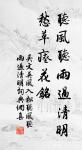 聽風聽雨過清明
愁草瘞花銘
吳文英風入松聽風聽
雨過清明詞典網喜